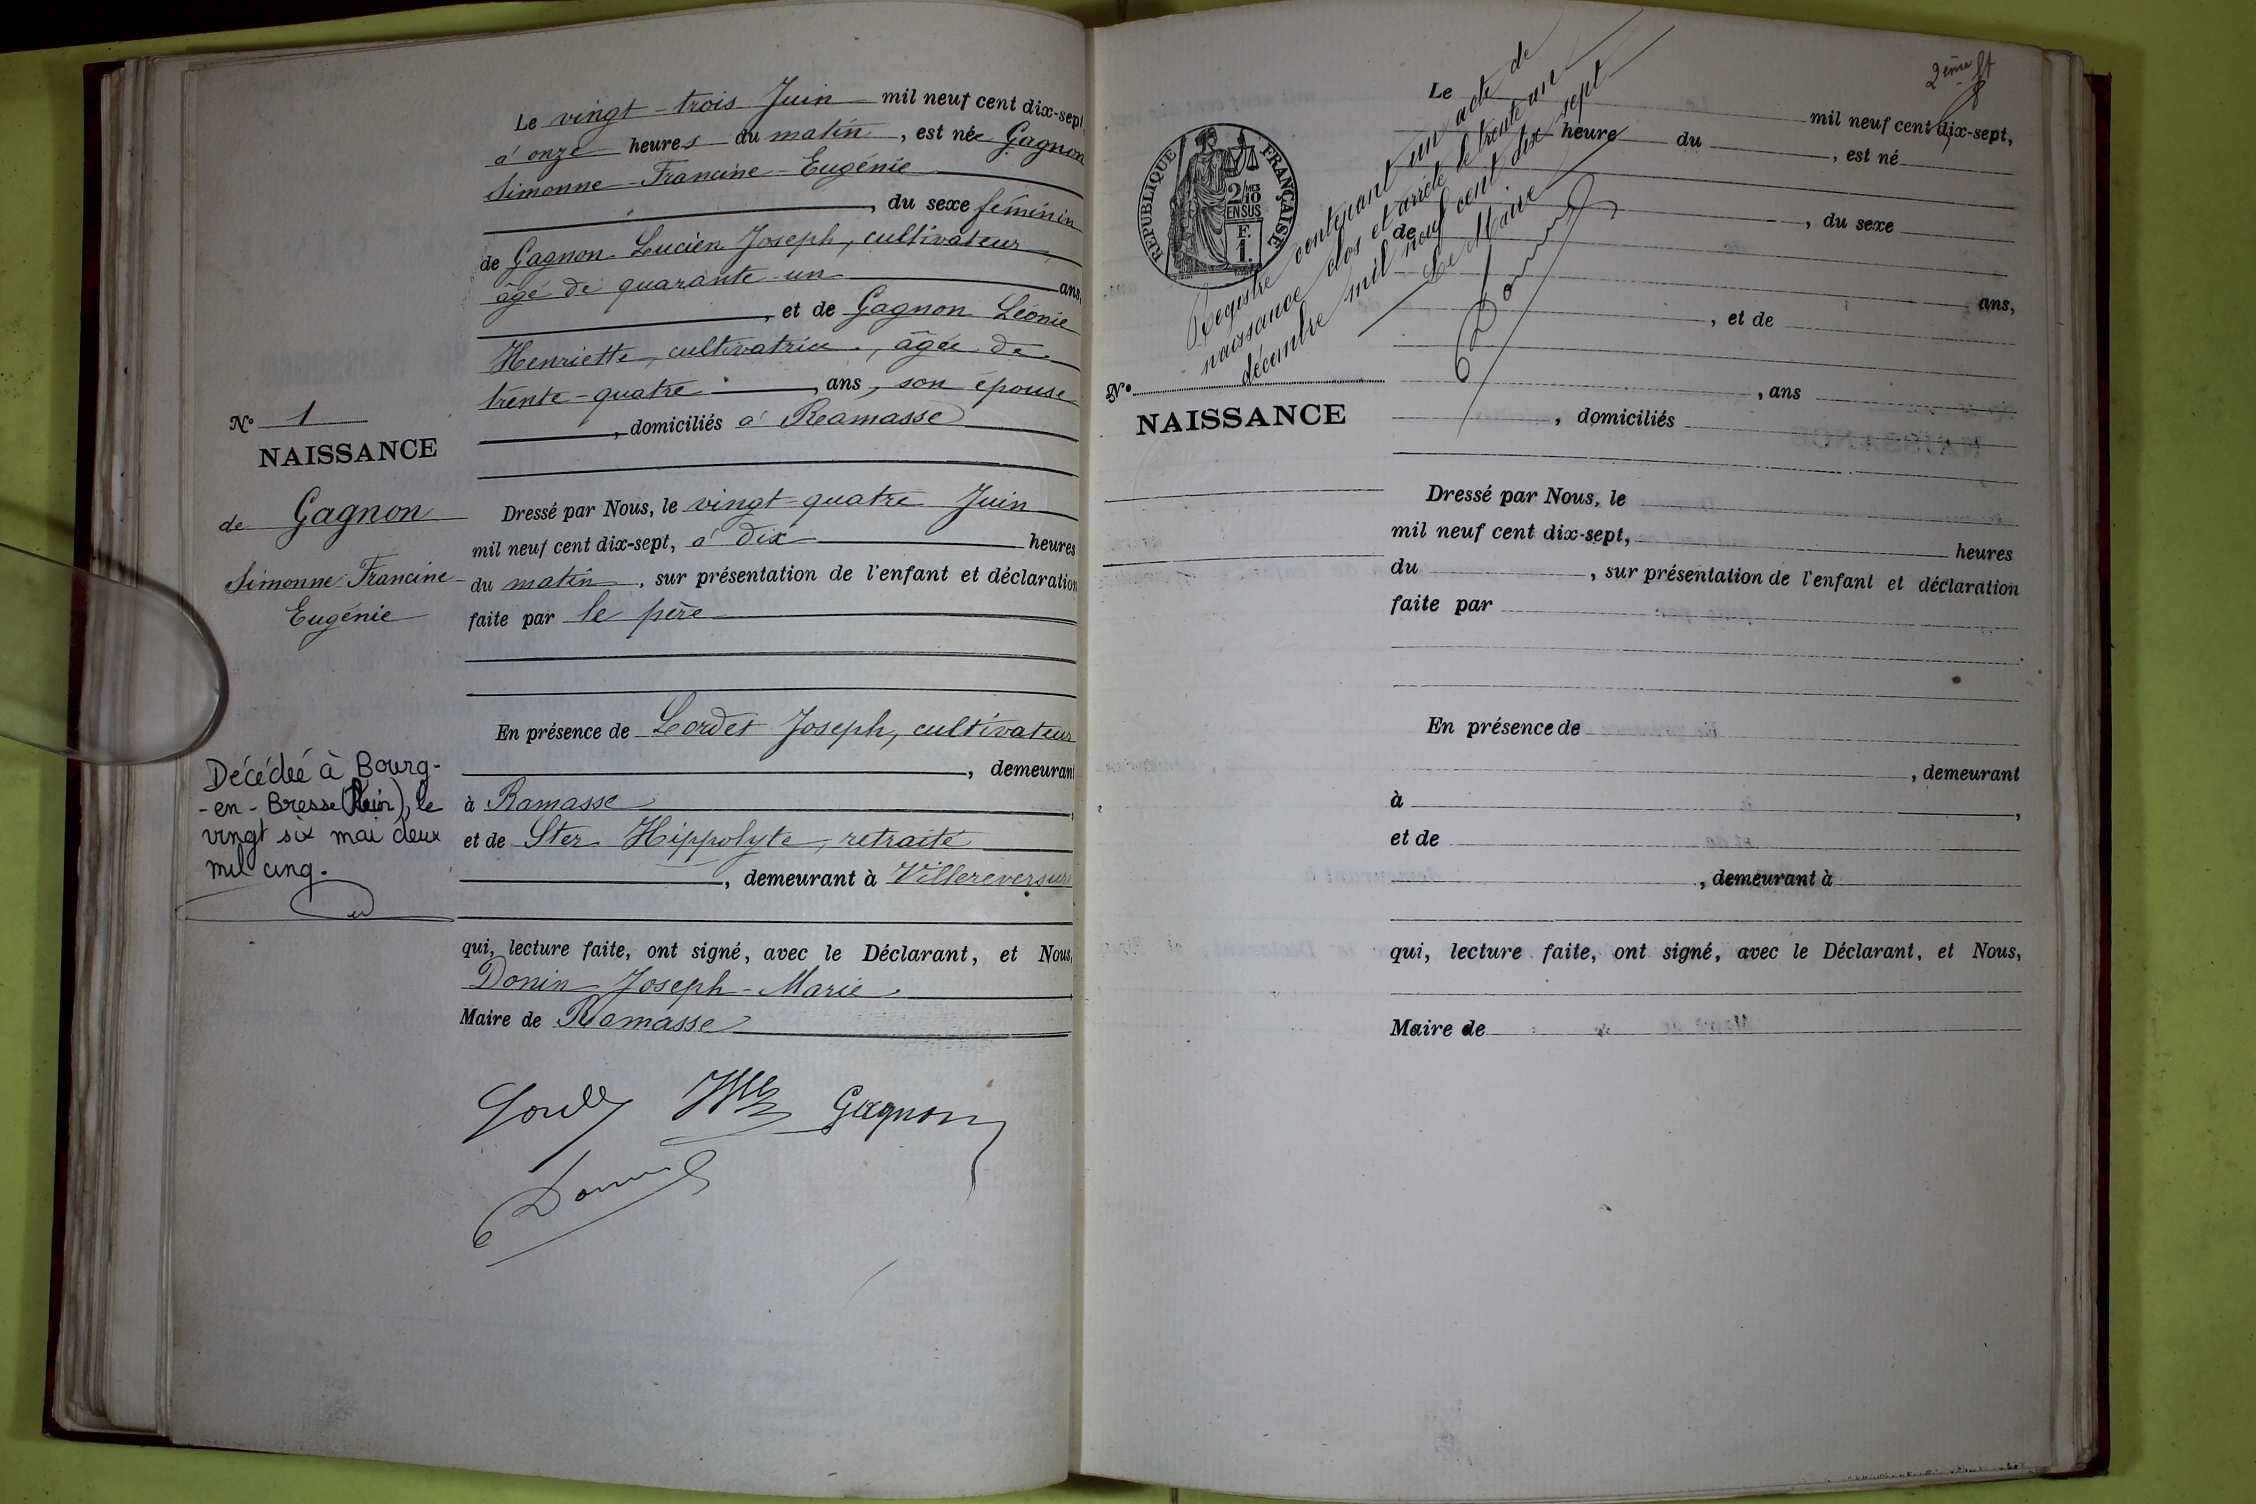 N° 1
NAISSANCE
de Gagnon
Simonne Francine
Eugénie
Décédée à Bourg-
-en-Bresse (Ain), le
vingt six mai deux
mil cinq.
Le vingt-trois Juin mil neuf cent dix-sept,
à onze heures du matin, est née Gagnon
Simonne Francine Eugénie
, du sexe féminin
de Gagnon Lucien Joseph, cultivateur
âgé de quarante-un ans,
, et de Gagnon Léonie
Henriette, cultivatrice, âgée de
trente-quatre, ans, son épouse
, domiciliés à Ramasse
Dressé par Nous, le vingt-quatre Juin
mil neuf cent dix-sept, à dix heures
du matin, sur présentation de l'enfant et déclaration
faite par le père
En présence de Lordet Joseph, cultivateur
, demeurant
à Ramasse,
et de Ster Hippolyte, retraité
, demeurant à Villereversure
qui, lecture faite, ont signé, avec le Déclarant, et Nous,
Donin Joseph-Marie
Maire de Ramasse
Gagnon
Donin
2ème ft
RÉPUBLIQUE FRANÇAISE
2/10 MES
EN SUS
F.
1.
Registre contenant un acte de
naissance clos et arrêté le trente un
décembre mil neuf cent dix sept
Le Maire
Donin
N°
NAISSANCE
Le mil neuf cent dix-sept,
heure du , est né
, du sexe
de
ans,
, et de
, ans
, domiciliés
Dressé par Nous, le
mil neuf cent dix-sept, heures
du , sur présentation de l'enfant et déclaration
faite par
En présence de
, demeurant
à ,
et de
, demeurant à
qui, lecture faite, ont signé, avec le Déclarant, et Nous,
Maire de